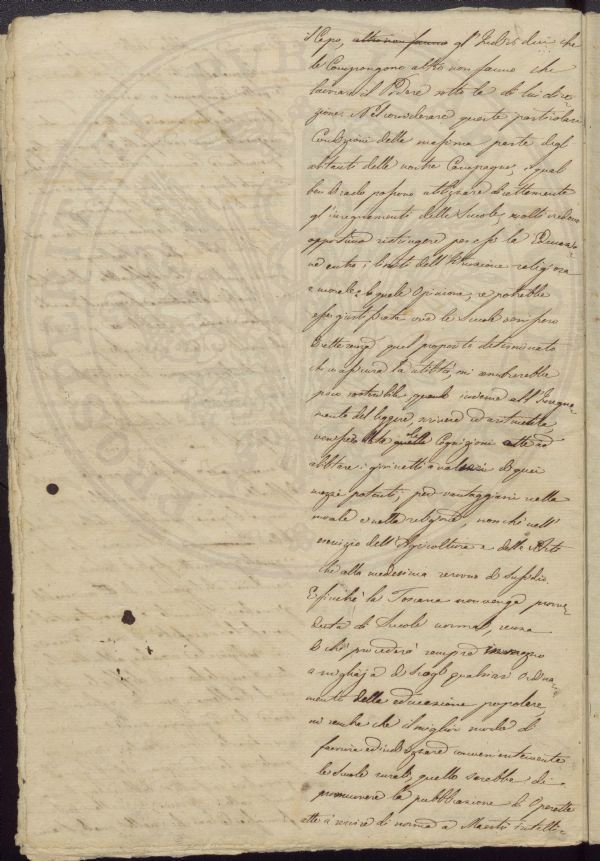 Capo, altro non fanno gl'Individui che
le Compongono altro non fanno che
lavorare il Podere sotto la di lui dire=
zione. Nel considerare queste particolari
Condizioni della massima parte degl'
abitanti delle nostre Campagne, i quali
ben di rado possono utilizzare direttamente
gl'insegnamenti delle Scuole, molti credono
opportuno restringere per essi la Educazio=
ne entro i limiti dell'Istruzione religiosa
e morale; la quale Opinione, se potrebbe
esser giustificata ove le Scuole non si
 quel proposito determinato
che ne assicura la utilità, mi sembrerebbe
poco sostenibile quando insieme all'Insegna=
mento del leggere, scrivere ed aritmetica
 date quelle le Cognizioni atte ad
abilitare i giovinetti a valersi di quei
mezzi potenti, per vantaggiarsi nella
morale e nella religione, nonchè nell'
esercizio dell'Agricoltura e delle Arti
che alla medesima servono di sussidio.
E finchè la Toscana non venga provve=
duta di Scuole normali, senza
di che procederà sempre in mezzo
a migliaja di scogli qualsiasi Ordina=
mento della educazione popolare,
mi sembra che il miglior modo di
favorire ed indirizzare convenientemente
le Scuole rurali, quello sarebbe di
promuovere la pubblicazione di Operette
atte a servire di norma a Maestri intelli=